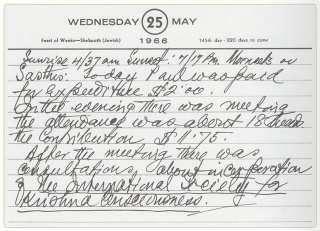 WEDNESDAY 25 MAY
1966
Feast of Weeks—Shebuoth (Jewish) 145th day - 220 days to come
Sunrise 4/37 am Sunset: 7/17 P.m. on
Today Paul was paid
for expenditure $2.00.
In the evening there was meeting
the attendance was about 18 heads.
the contribution $11.75.
After the meeting there was
consultations about incorporation
of the International Society for
Krishna Consciousness.